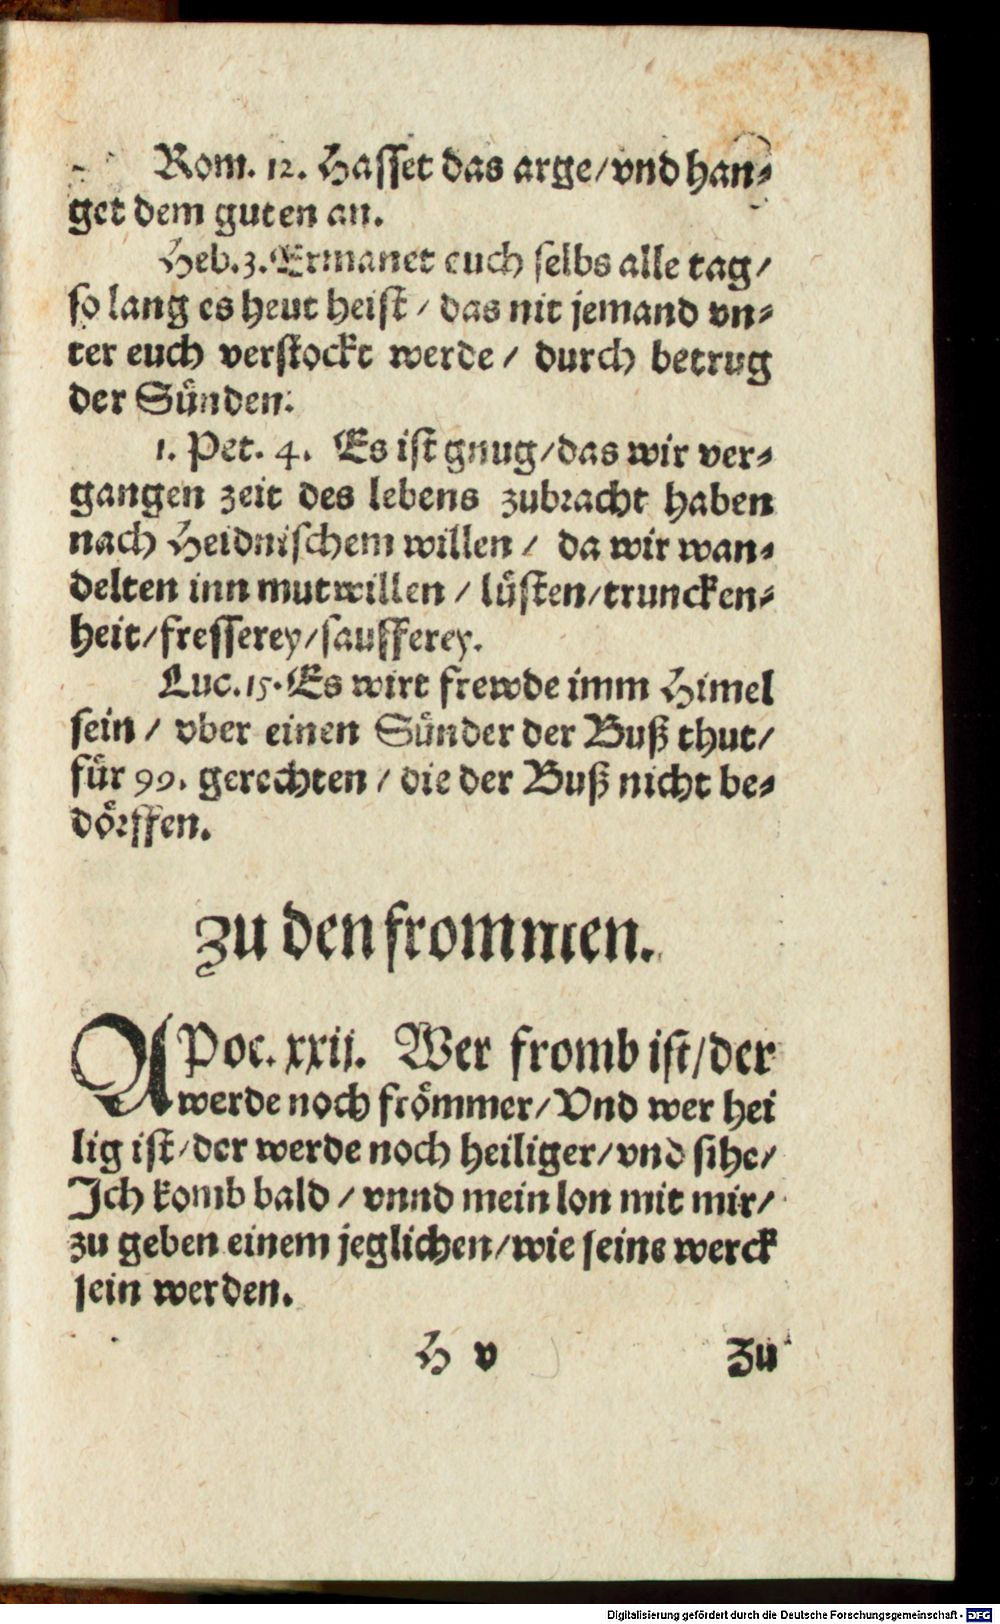 Rom. 12. Hasset das arge/vnd han⸗
get dem guten an.
Heb.3.Ermanet euch selbs alle tag/
so lang es heut heist / das nit jemand vn⸗
ter euch verstockt werde / durch betrug
der Sünden.
1. Pet. 4. Es ist gnug/das wir ver⸗
gangen zeit des lebens zubracht haben
nach Heidnischem willen / da wir wan⸗
delten inn mutwillen / lüsten/truncken⸗
heit/fresserey/saufferey.
Luc.15.Es wirt frewde imm Himel
sein / vber einen Sünder der Buß thut/
für 99. gerechten / die der Buß nicht be⸗
dörffen.
Zu den frommen.
APoc. xxij. Wer fromb ist/der
werde noch frömmer/Vnd wer hei
lig ist/der werde noch heiliger/vnd sihe/
Ich komb bald / vnnd mein lon mit mir/
zu geben einem jeglichen/wie seine werck
sein werden.
H v Zu
Digitalisierung gefördert durch die Deutsche Forschungsgemeinschaft - DFG